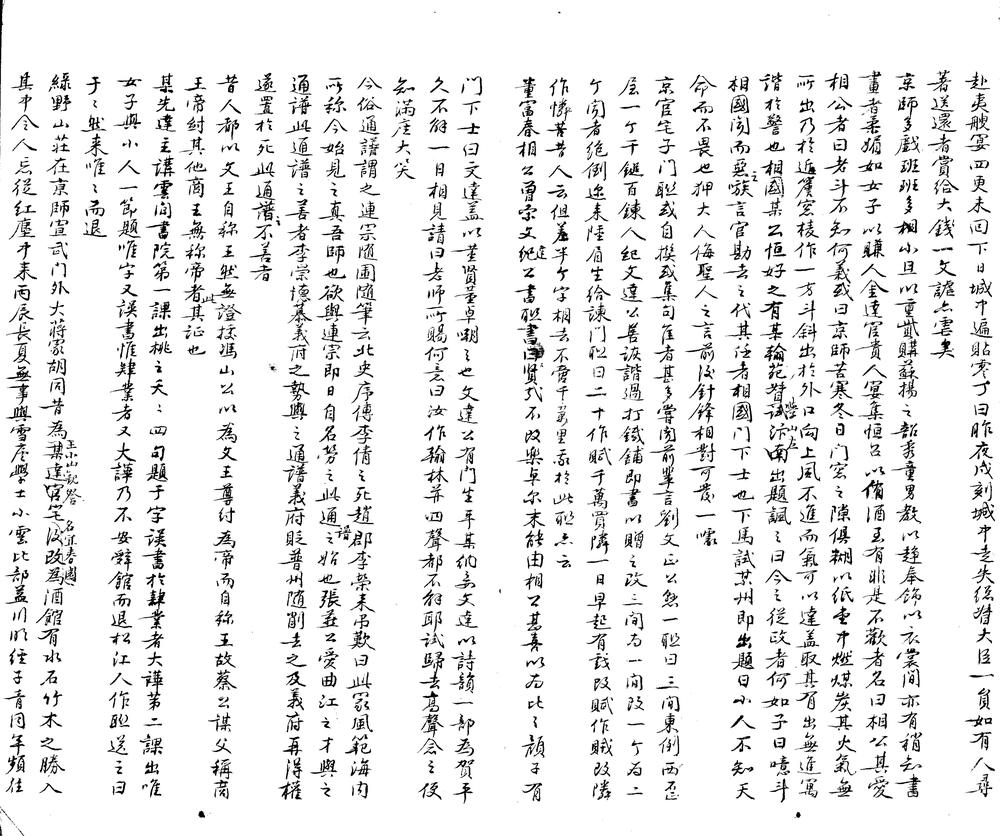 赴夷艘宴四更未回下日城中遍貼零丁曰昨夜戌刻城中走失總督大臣一員如有人尋
著送還者賞給大錢一文謔亦雲矣
京師多戲班班多相小旦以重貲購蘇揚之韶秀童男教以趨奉飾以衣裳間亦有稍知書
畫者柔媚如女子以賺人金達官貴人宴集恒召以侑酒王有非是不歡者名曰相公其愛
相公者曰老斗不知何義或曰京師苦寒冬日門窗之隙俱糊以紙堂中燃煤炭其火氣無
所出乃於近簷窗棱作一方斗斜出於外口向上風不進而氣可以達蓋取其有出無進寓
諧於警也相國某公恒好之有某翰苑督學山左試沛南出題諷之曰今之從政者何如子曰噫斗
相國聞而惡之嗾言官劾去之代其任者相國門下士也下馬試某州即出題曰小人不知天
命而不畏也狎大人侮聖人之言前後針鋒相對可發一噱
京官宅子門聯或自撰或集句佳者甚多嘗聞前輩言劉文正公懸一聯曰三間東倒西歪
屋一个千錘百鍊人紀文達公善詼諧過打鐵鋪即書以贈之改三間為一間改一个為二
个閱者絕倒近來陸眉生給諫門聯曰二十作賦千萬買隣一日早起有戲改賦作賊改隣
作憐者昔人云但羞半个字相去不啻千萬里我於此聯亦云
董富春相公曾索文達紀公書聯書曰賢哉不改樂卓尔末能由相公甚喜以為比之顏子有
門下士曰文達蓋以董賢董卓嘲之也文達公有門生平某納妾文達以詩韻一部為賀平
久不解一日相見請曰老師所賜何意曰汝作翰林并四聲都不解耶試歸去高聲念之便
知滿座大笑
今俗通譜謂之連宗隨園隨筆云北史序傳李倩之死趙郡李榮來弔歎曰此家風範海內
所稱今始見之真吾師也欲與連宗即日自名勞之此通譜之始也張燕公愛曲江之才與之
通譜此通譜之善者李崇德慕義府之勢與之通譜義府貶普州隨削去之及義府再得權
遂置於死此通譜之不善者
昔人都以文王自稱王然無證授馮山公以為文王尊紂為帝而自稱王故蔡公謀父稱商
王帝紂其他商王無稱帝者此其証也
某先達主講雲間書院第一課出桃之夭夭四句題于字誤書於肄業者大譁第二課出唯
女子與小人一節題唯字又誤書惟肄業者又大譁乃不安辭館而退松江人作聯送之曰
于于然來唯唯而退
綠野山莊在京師宣武門外大蔣家胡同昔為某達官宅後改為酒館有水石竹木之勝入
王小山觀詧 名宜春園
其中令人忘從紅塵中來丙辰長夏無事與雪廬學士小雲比部益川明經子青同年頻往